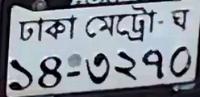 ঢাকা মেট্রো-ঘ
১৪-৩২৭০